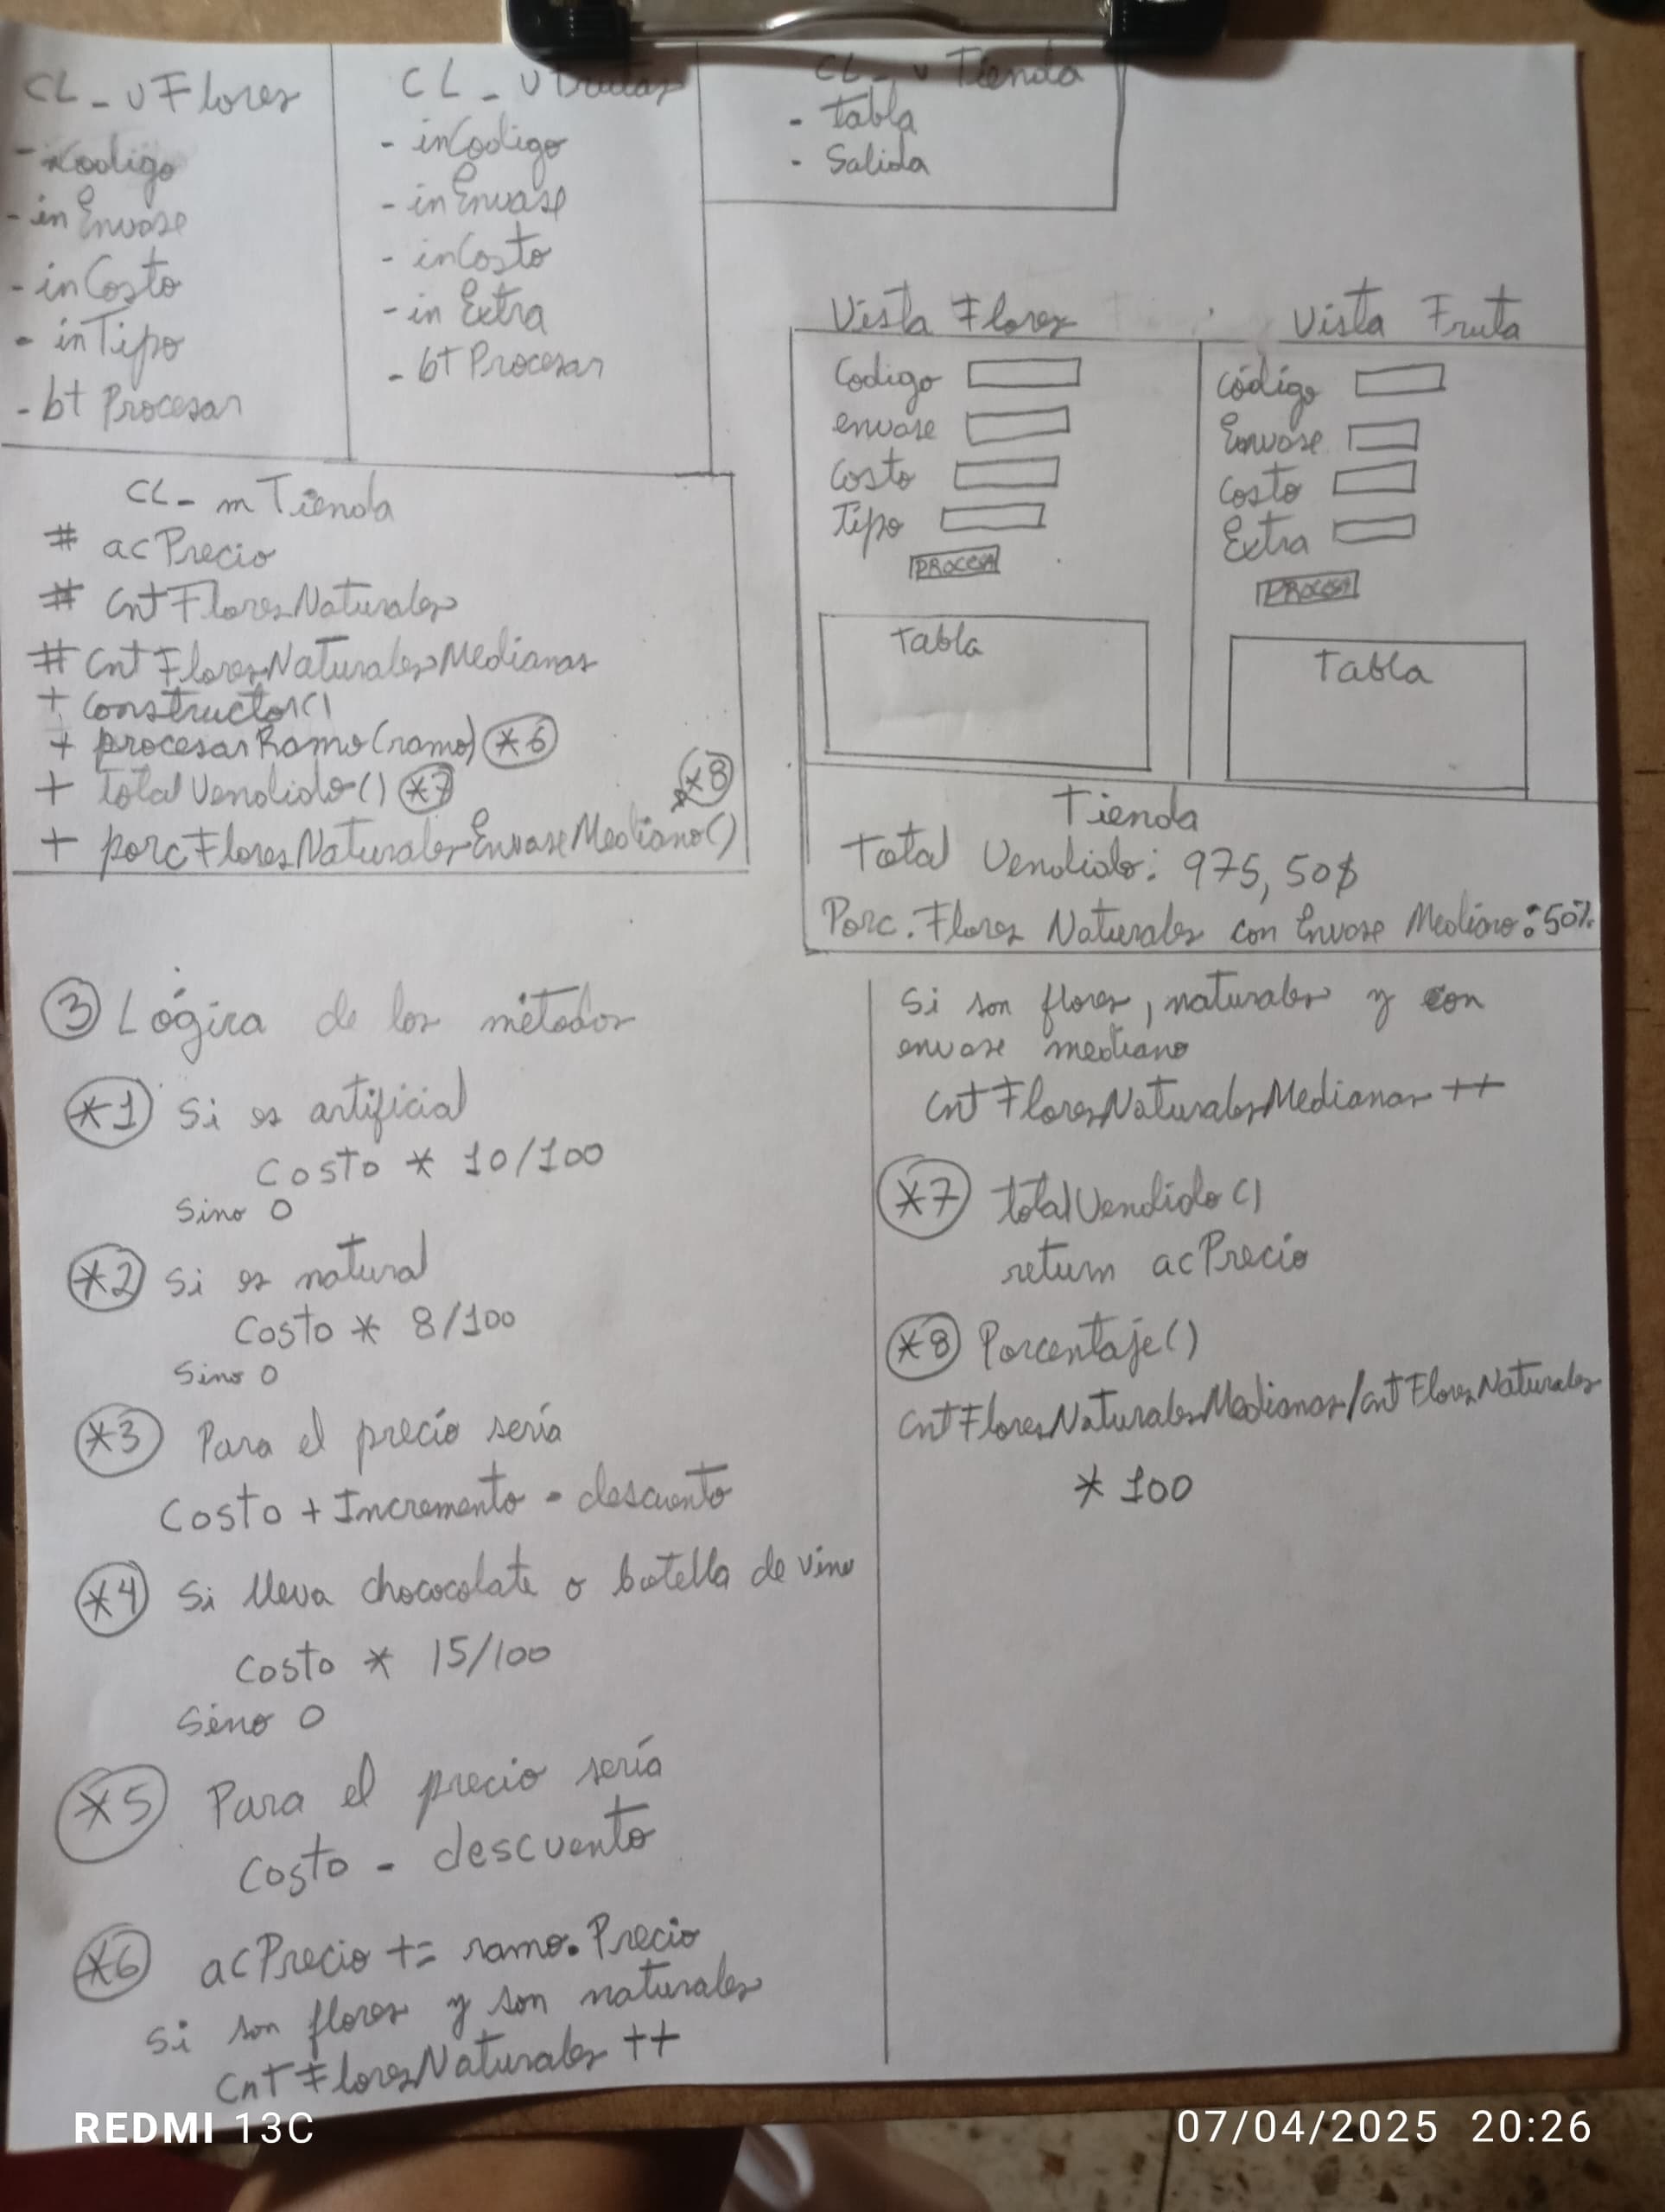 CL_vFlores
- inCodigo
- inEnvase
- inCosto
- inTipo
- bt Procesar
CL_vFrutas
- inCodigo
- inEnvase
- inCosto
- inExtra
- bt Procesar
CL_vTienda
- tabla
- Salida
CL_mTienda
# acPrecio
# CntFloresNaturales
# CntFloresNaturalesMedianas
+ Constructor()
+ procesarRamo(ramo) *6
+ totalVendido() *7
*8
+ porcFloresNaturalesEnvaseMediano()
Vista Flores
Codigo
envase
Costo
Tipo
PROCESA
Tabla
Vista Fruta
código
Envase
Costo
Extra
PROCESA
Tabla
Tienda
Total Vendido: 975,50$
Porc. Flores Naturales con Envase Mediano: 50%
3 Lógica de los métodos
*1 Si es artificial
Costo * 10/100
Sino 0
*2 Si es natural
Costo * 8/100
Sino 0
*3 Para el precio sería
Costo + Incremento - descuento
*4 Si lleva chococolate o botella de vino
Costo * 15/100
Sino 0
*5 Para el precio sería
Costo - descuento
*6 acPrecio += ramo.Precio
Si son flores y son naturales
CntFloresNaturales ++
Si son flores, naturales y con
envase mediano
CntFloresNaturalesMedianas ++
*7 totalVendido()
return acPrecio
*8 Porcentaje()
CntFloresNaturalesMedianas/CntFloresNaturales
* 100
REDMI 13C
07/04/2025 20:26